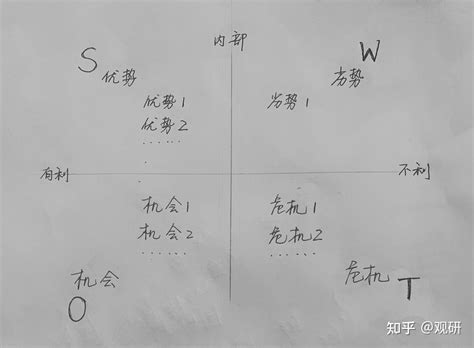 内部
S
W
优势
劣势
优势1
劣势1
优势2
......
有利
不利
机会1
危机1
机会2
危机2
......
......
机会
危机
O
T
知乎 @观研